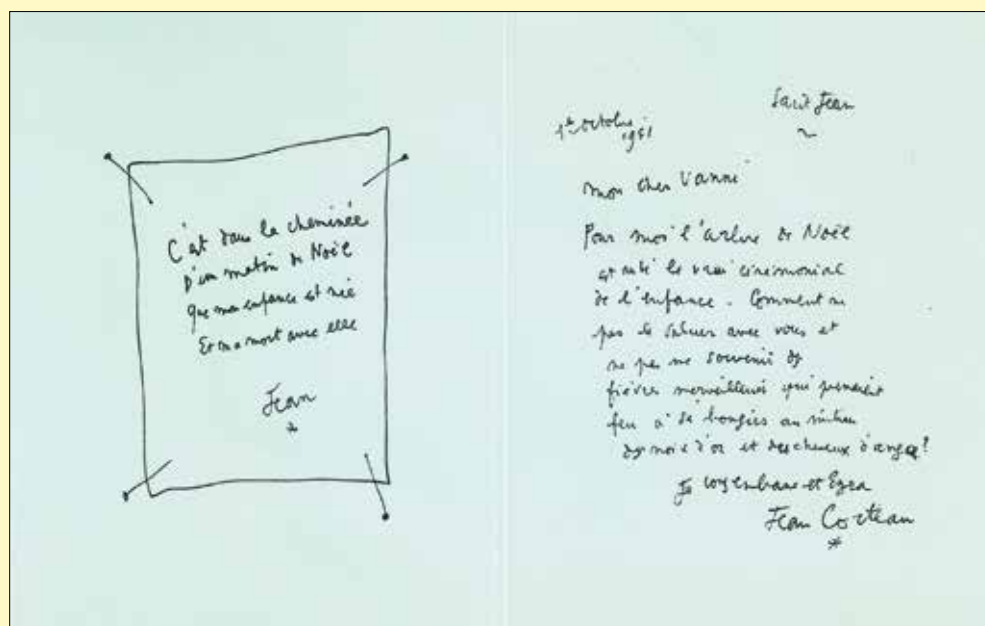 C'est dans la cheminée
D'un matin de Noël
Que mon enfance est née
Et ma mort avec elle
Jean
Saint Jean
1er octobre
1961
mon cher Vanni
Pour moi l'arbre de Noël
est resté le vrai cérémonial
de l'enfance. Comment ne
pas le saluer avec vous et
ne pas me souvenir des
fièvres merveilleuses qui prenaient
feu à de bougies au milieu
des noix d'or et des cheveux d'anges?
Je vous embrasse et Ezra
Jean Cocteau